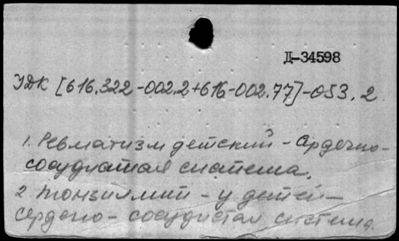 Д-34598
УДК [616.322-002.2+616-002.77]-053.2
1. Ревматизм детский - сердечно-
сосудистая система.
2 Тонзиллит - у детей -
сердечно - сосудистая система.